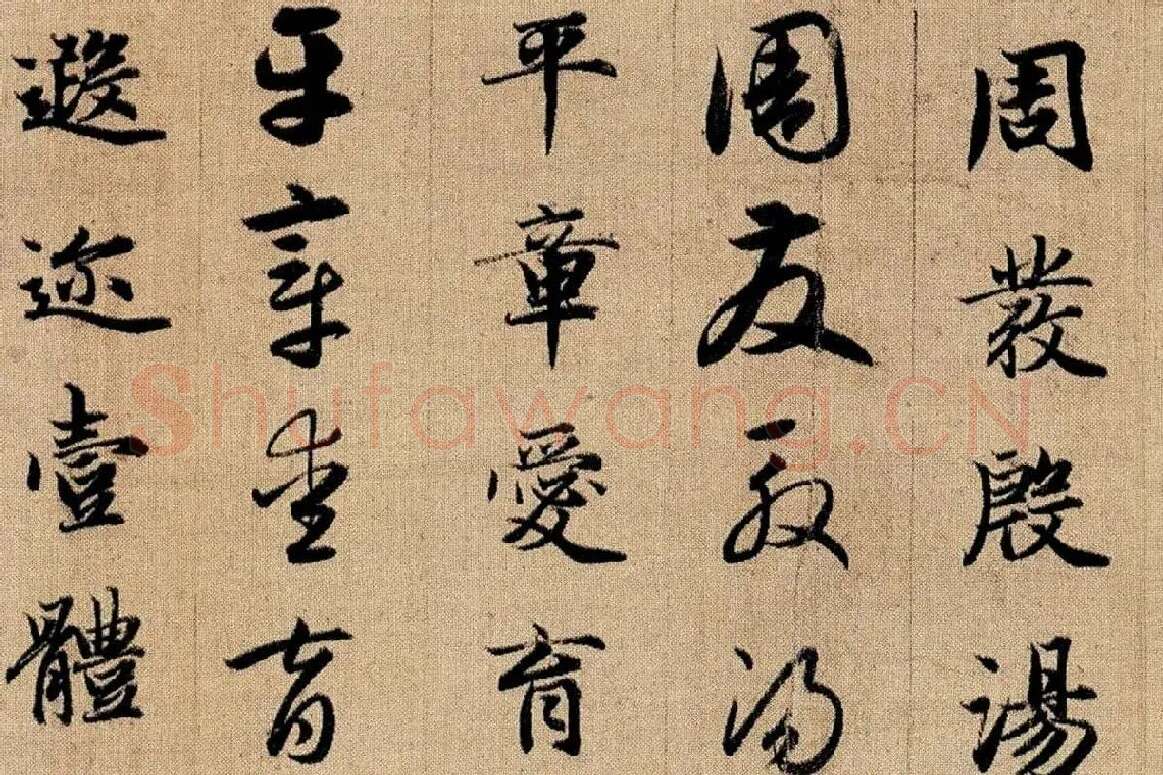 周發殷湯
周發殷湯
平章愛育
平章愛育
遐迩壹體
Shufawang.CN